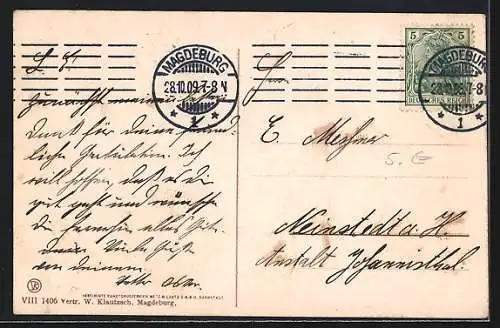 MAGDEBURG
28.10.09.7-8 N
* 1 *
5 5
DEUTSCHES REICH
MAGDEBURG
28.10.09.7-8
* 1 *
L.
Zunächst meinen
Dank für Deine freund-
liche Gratulation. Ich
will hoffen, daß es Dir
gut geht und wünsche
Dir fernerhin alles Gute.
Viele Grüße
von Deinem
E. Meßner
5.€
Neinstedt a. H.
Anstalt Johannisthal.
VIII 1406 Vertr. W. Klautzsch, Magdeburg,